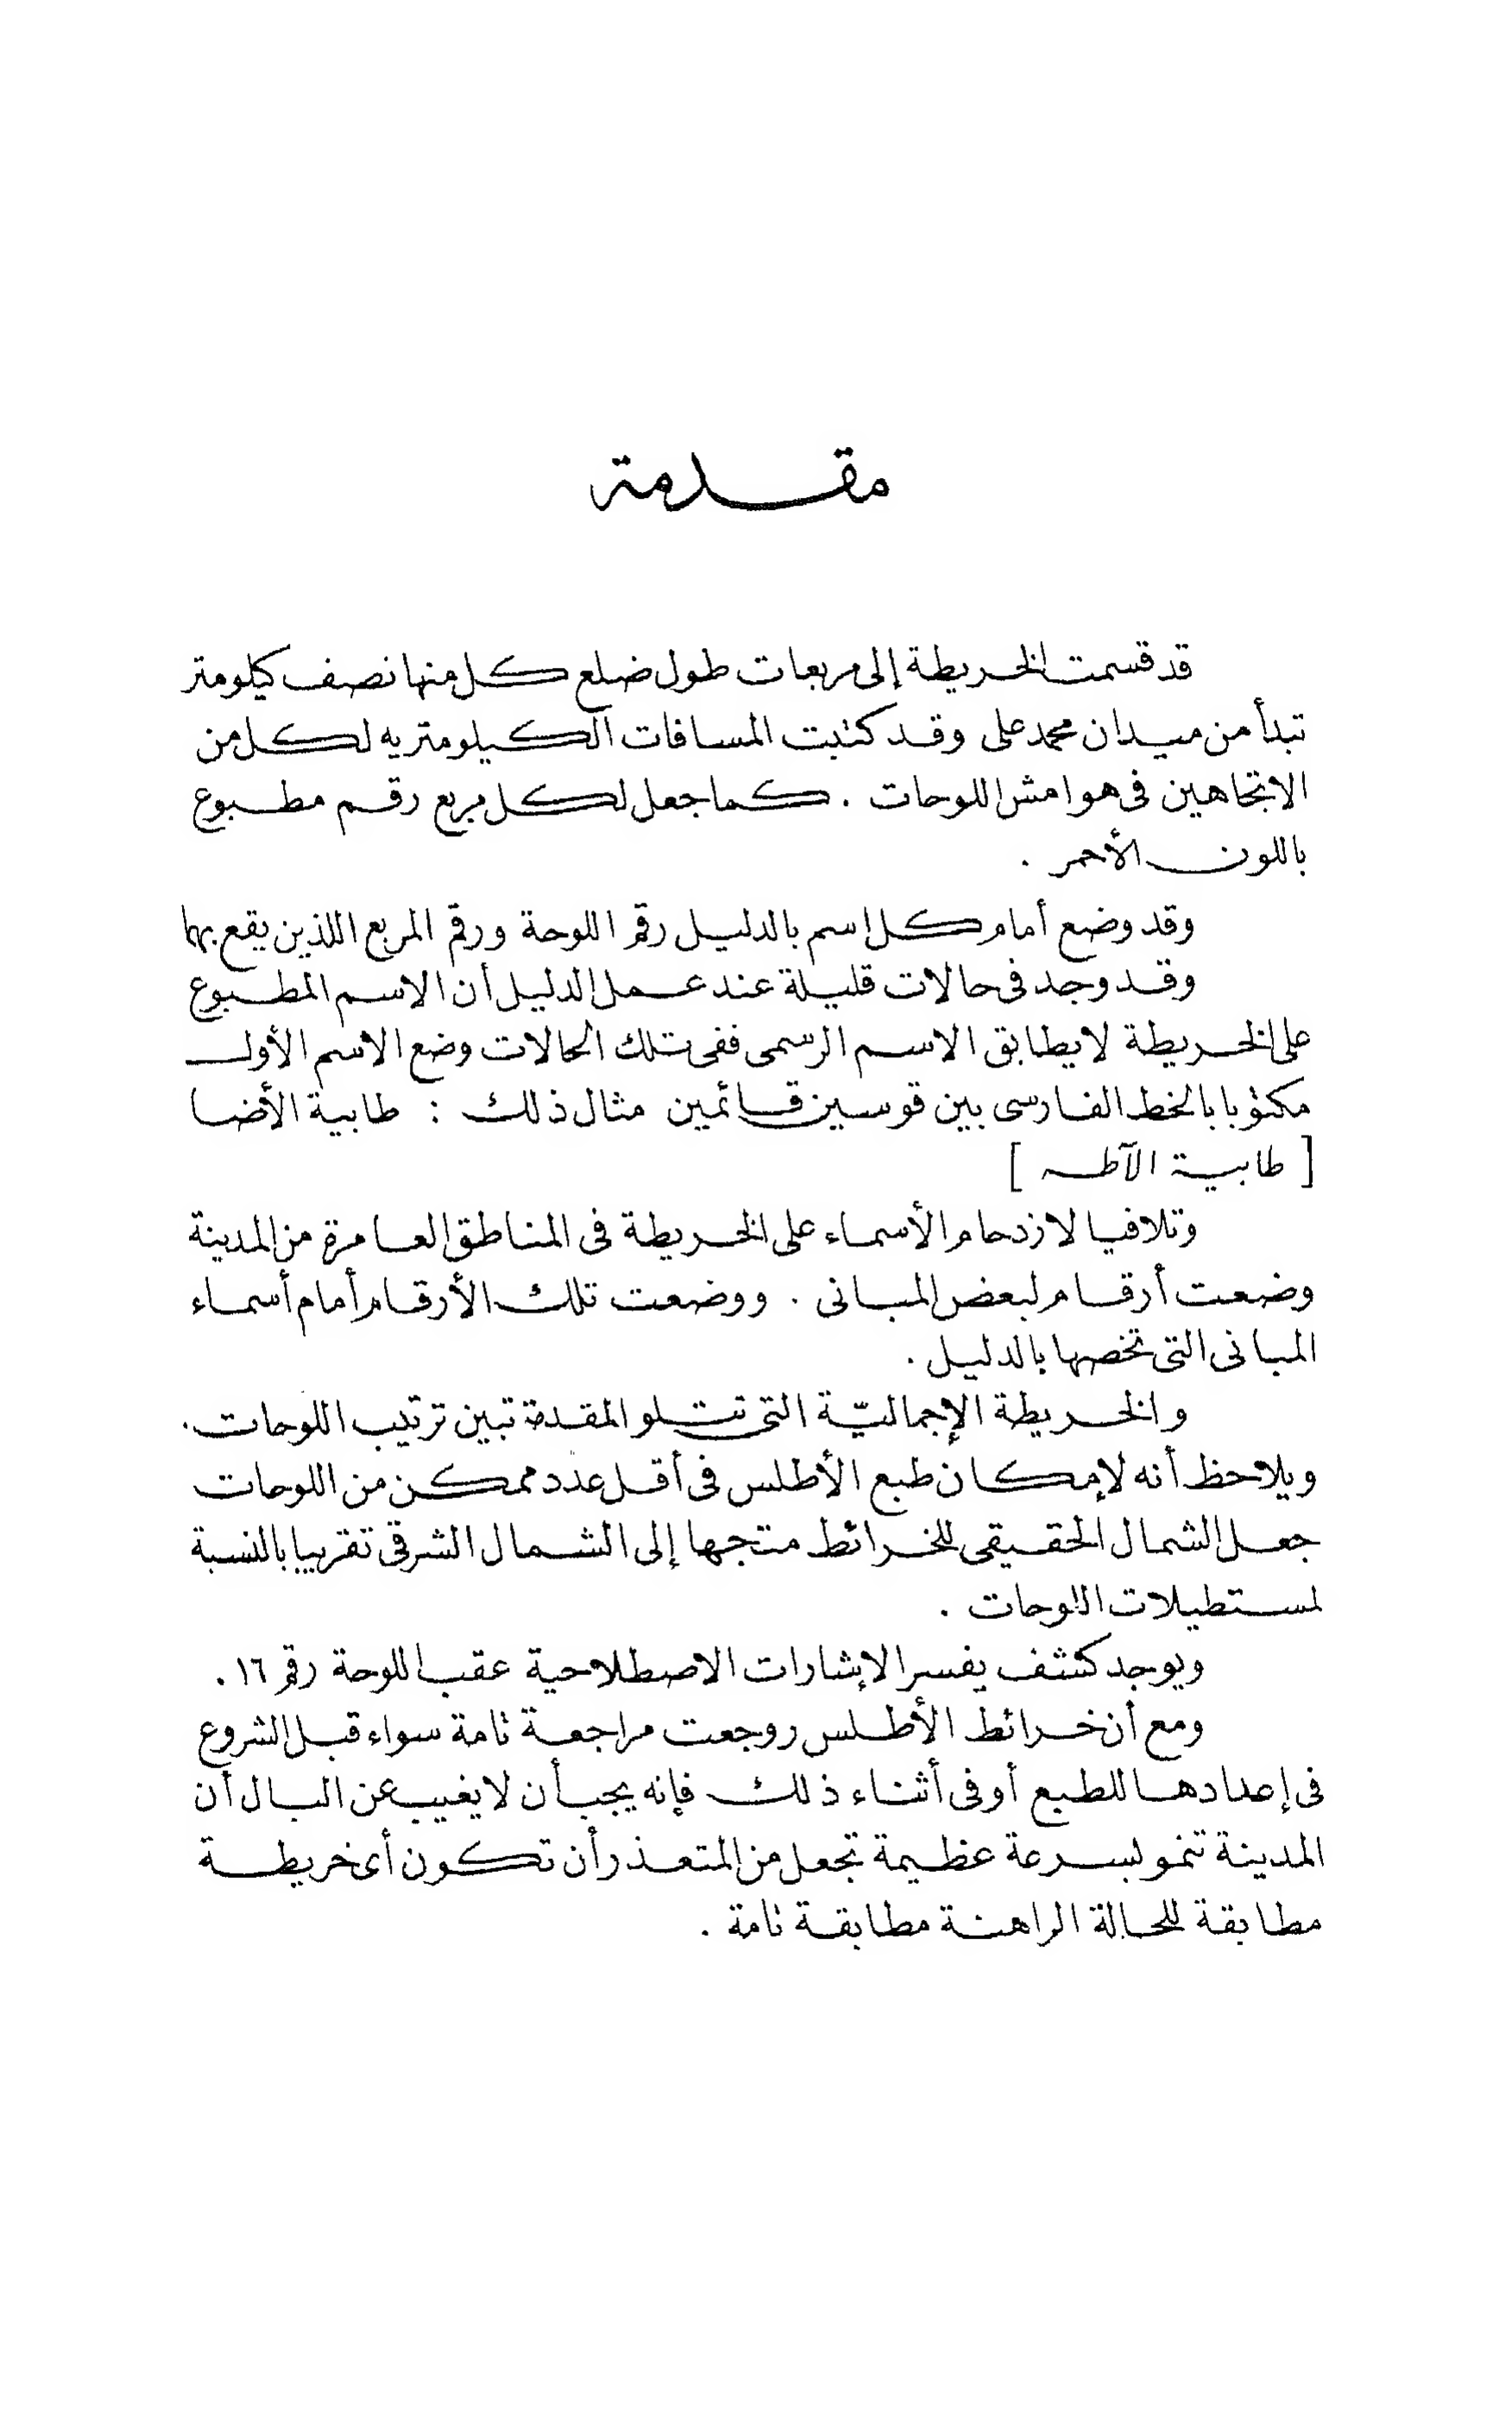 مقدمة
قد قسمت الخريطة إلى مربعات طول ضلع كل منها نصف كيلومتر
تبدأ من ميدان محمد على وقد كتبت المسافات الكيلومتريه لكل من
الاتجاهين فى هوامش اللوحات . كما جعل لكل مربع رقم مطبوع
باللون الأحمر .
وقد وضع أمام كل إسم بالدليل رقم اللوحة ورقم المربع اللذين يقع بهما
وقد وجد فى حالات قليلة عند عمل الدليل أن الاسم المطبوع
على الخريطة لا يطابق الاسم الرسمى ففى تلك الحالات وضع الاسم الأول
مكتوبا بالخط الفارسى بين قوسين قائمين مثال ذلك : طابية الأضا
[ طابية الآطه ]
وتلافيا لازدحام الأسماء على الخريطة فى المناطق العامرة من المدينة
وضعت أرقام لبعض المبانى . ووضعت تلك الأرقام أمام أسماء
المبانى التى تخصها بالدليل .
والخريطة الإجماليّة التى تتلو المقدمة تبين ترتيب اللوحات .
ويلاحظ أنه لإمكان طبع الأطلس فى أقل عدد ممكن من اللوحات
جعل الشمال الحقيقى للخرائط متجها إلى الشمال الشرقى تقريبا بالنسبة
لمستطيلات اللوحات .
ويوجد كشف يفسر الإشارات الاصطلاحية عقب اللوحة رقم ١٦ .
ومع أن خرائط الأطلس روجعت مراجعة تامة سواء قبل الشروع
فى إعدادها للطبع أو فى أثناء ذلك فإنه يجب أن لا يغيب عن البال أن
المدينة تنمو بسرعة عظيمة تجعل من المتعذر أن تكون أى خريطة
مطابقة للحالة الراهنة مطابقة تامة .